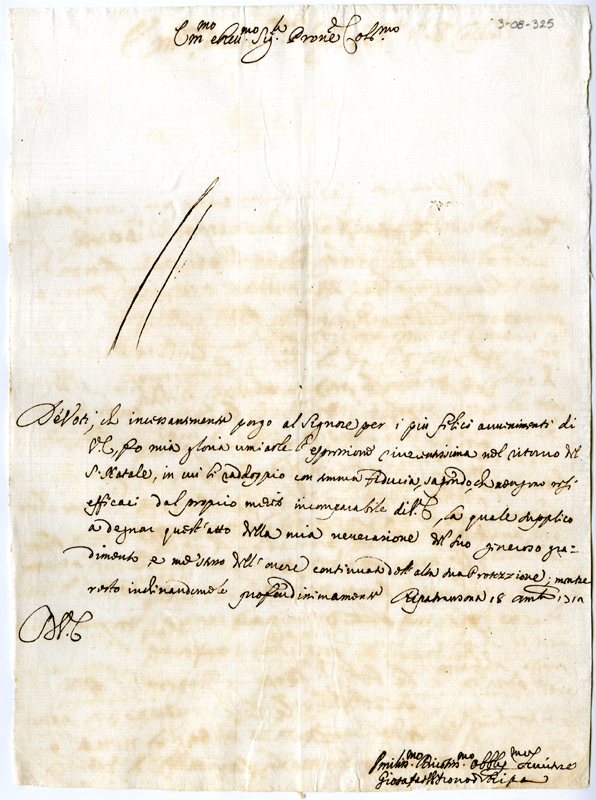 3-08-325
Em.mo e Reu.mo Sig.r Prone Col.mo
De Voti, che incessantemente porgo al Signore per i più felici auuenimenti di
V.E., fo mia gloria umiarle l'espressione riuerentissima nel ritorno del
S. Natale, in cui li raddoppio con somma fiducia, sapendo, che uengono resi
efficaci dal proprio merito incomparabile di V.E., la quale supplico
a degnar quest'atto della mia uenerazione del suo generoso gra-
dimento e me stesso dell'onore continuato dell'alta sua Protezzione; mentre
resto inchinandomele profondissimamente Ripatransona 18
D.V.E.
Umiliss.mo Deuotiss.mo Obblig.mo Seruitore